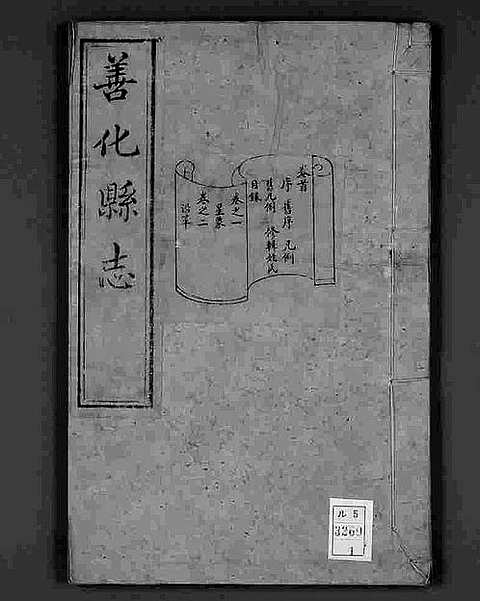 善化縣志
卷首
序 舊序 凡例
舊凡例 修輯姓氏
目錄
卷之一
星象
卷之二
沿革
ル5
3269
1